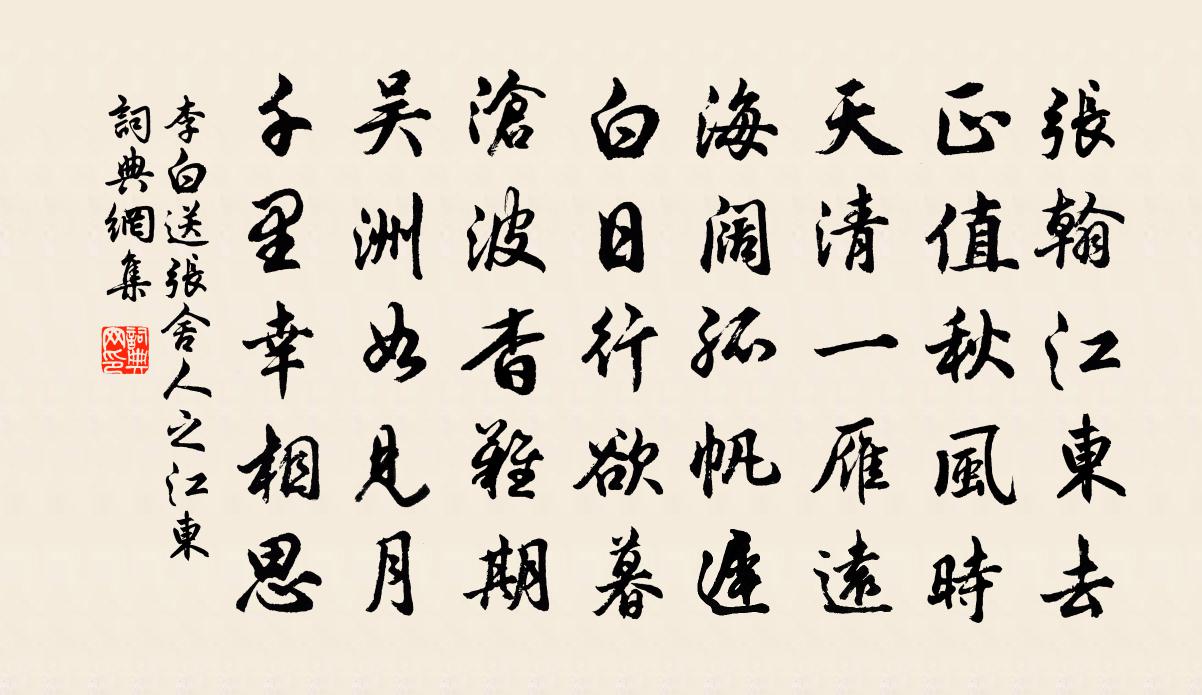 張翰江東去
正值秋風時
天清一雁遠
海闊孤帆遲
白日行欲暮
滄波杳難期
吳洲如見月
千里幸相思
李白送張舍人之江東
詞典網集
詞典网印